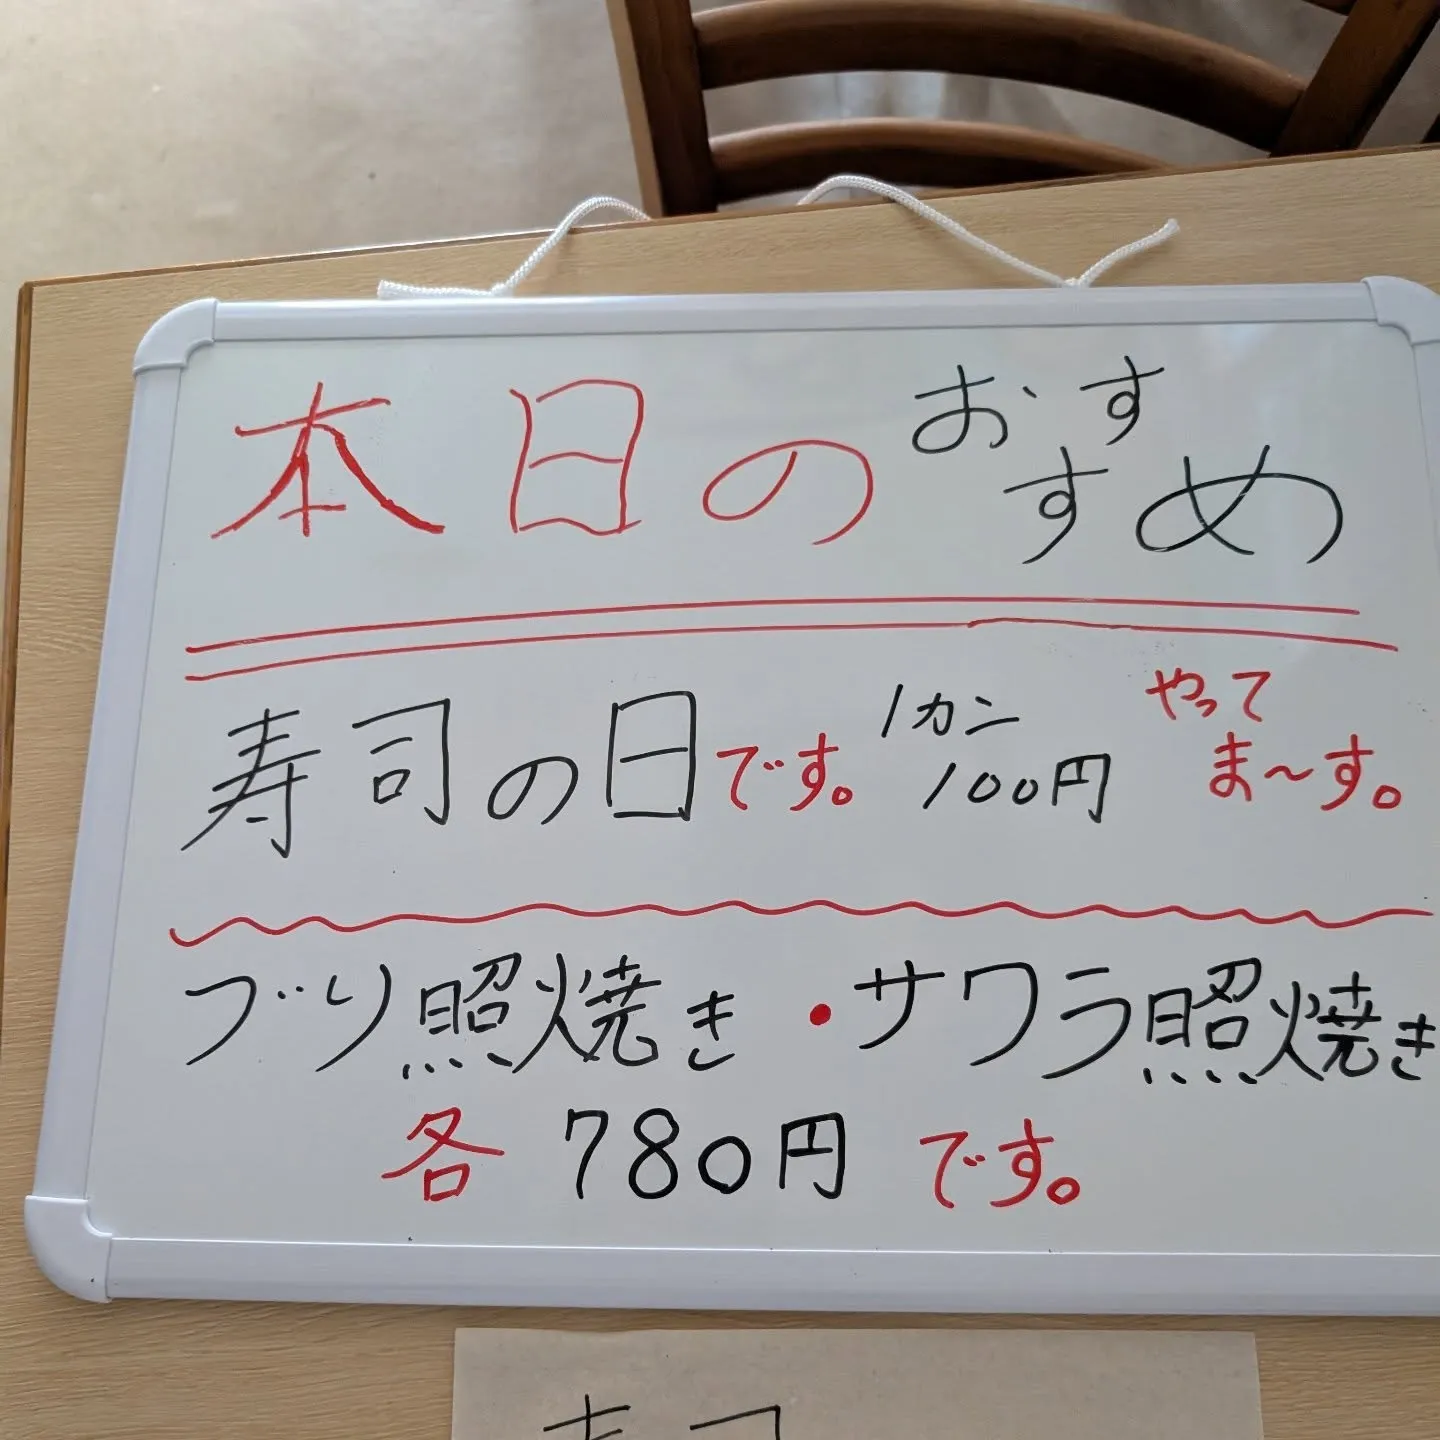 本日のおすすめ
寿司の日です。1カン100円やってま〜す。
ブリ照焼き・サワラ照焼き
各780円です。
寿司